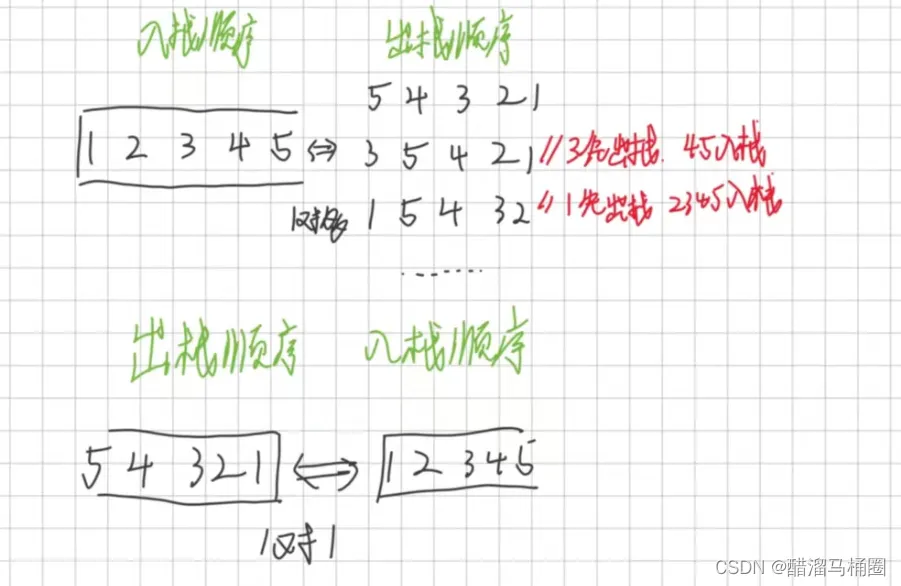 入栈顺序 出栈顺序
5 4 3 2 1
1 2 3 4 5 ⇔ 3 5 4 2 1 //3先出栈. 45入栈
1对多 1 5 4 3 2 //1先出栈 2345入栈
.......
出栈顺序 入栈顺序
5 4 3 2 1 ⇔ 1 2 3 4 5
1对1
CSDN @醋溜马桶圈